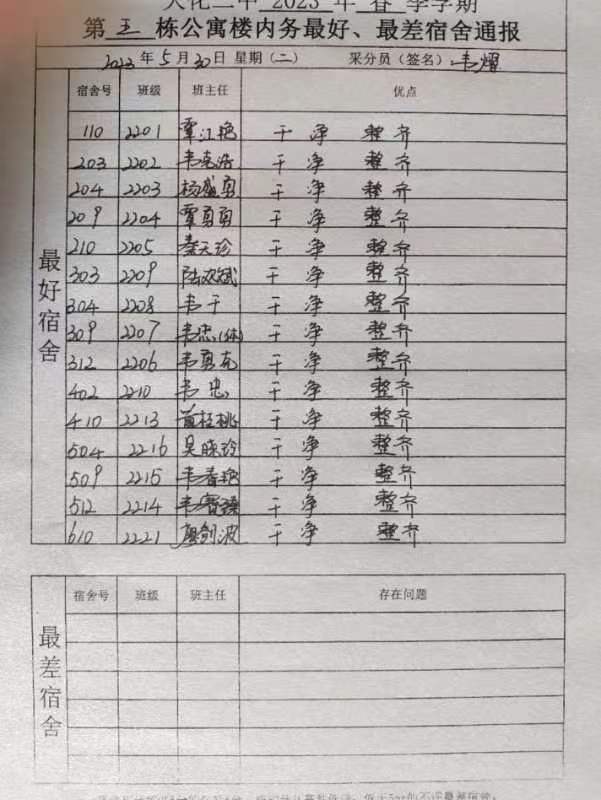 大化二中 2023 年 春 季学期
第 五 栋公寓楼内务最好、最差宿舍通报
2023 年 5 月 30 日 星期 (二) 采分员（签名） 韦耀
最好宿舍
宿舍号 班级 班主任 优点
110 2201 覃江艳 干净 整齐
203 2202 韦克浩 干净 整齐
204 2203 杨盛勇 干净 整齐
209 2204 覃勇勇 干净 整齐
210 2205 秦天珍 干净 整齐
303 2209 陆双斌 干净 整齐
304 2208 韦干 干净 整齐
309 2207 韦忠(体) 干净 整齐
312 2206 韦勇克 干净 整齐
402 2210 韦忠 干净 整齐
410 2213 黄桂桃 干净 整齐
504 2216 吴晓玲 干净 整齐
509 2215 韦春艳 干净 整齐
512 2214 韦 干净 整齐
610 2221 剑波 干净 整齐
最差宿舍
宿舍号 班级 班主任 存在问题